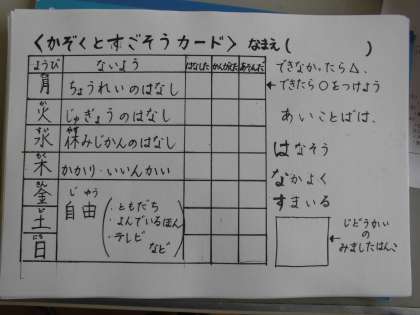 〈かぞくとすごそうカード〉 なまえ(　　　)
ようび ないよう はなした かんがえた あそんだ
月 ちょうれいのはなし
火 じゅぎょうのはなし
水 休みじかんのはなし
木 かかり・いいんかい
金 自由 じゆう
土
日
・ともだち
・よんでいるほん
・テレビ
など
できなかったら△、
←できたら○をつけよう
あいことばは、
はなそう
なかよく
すまいる
じどうかい
の
みましたはんこ